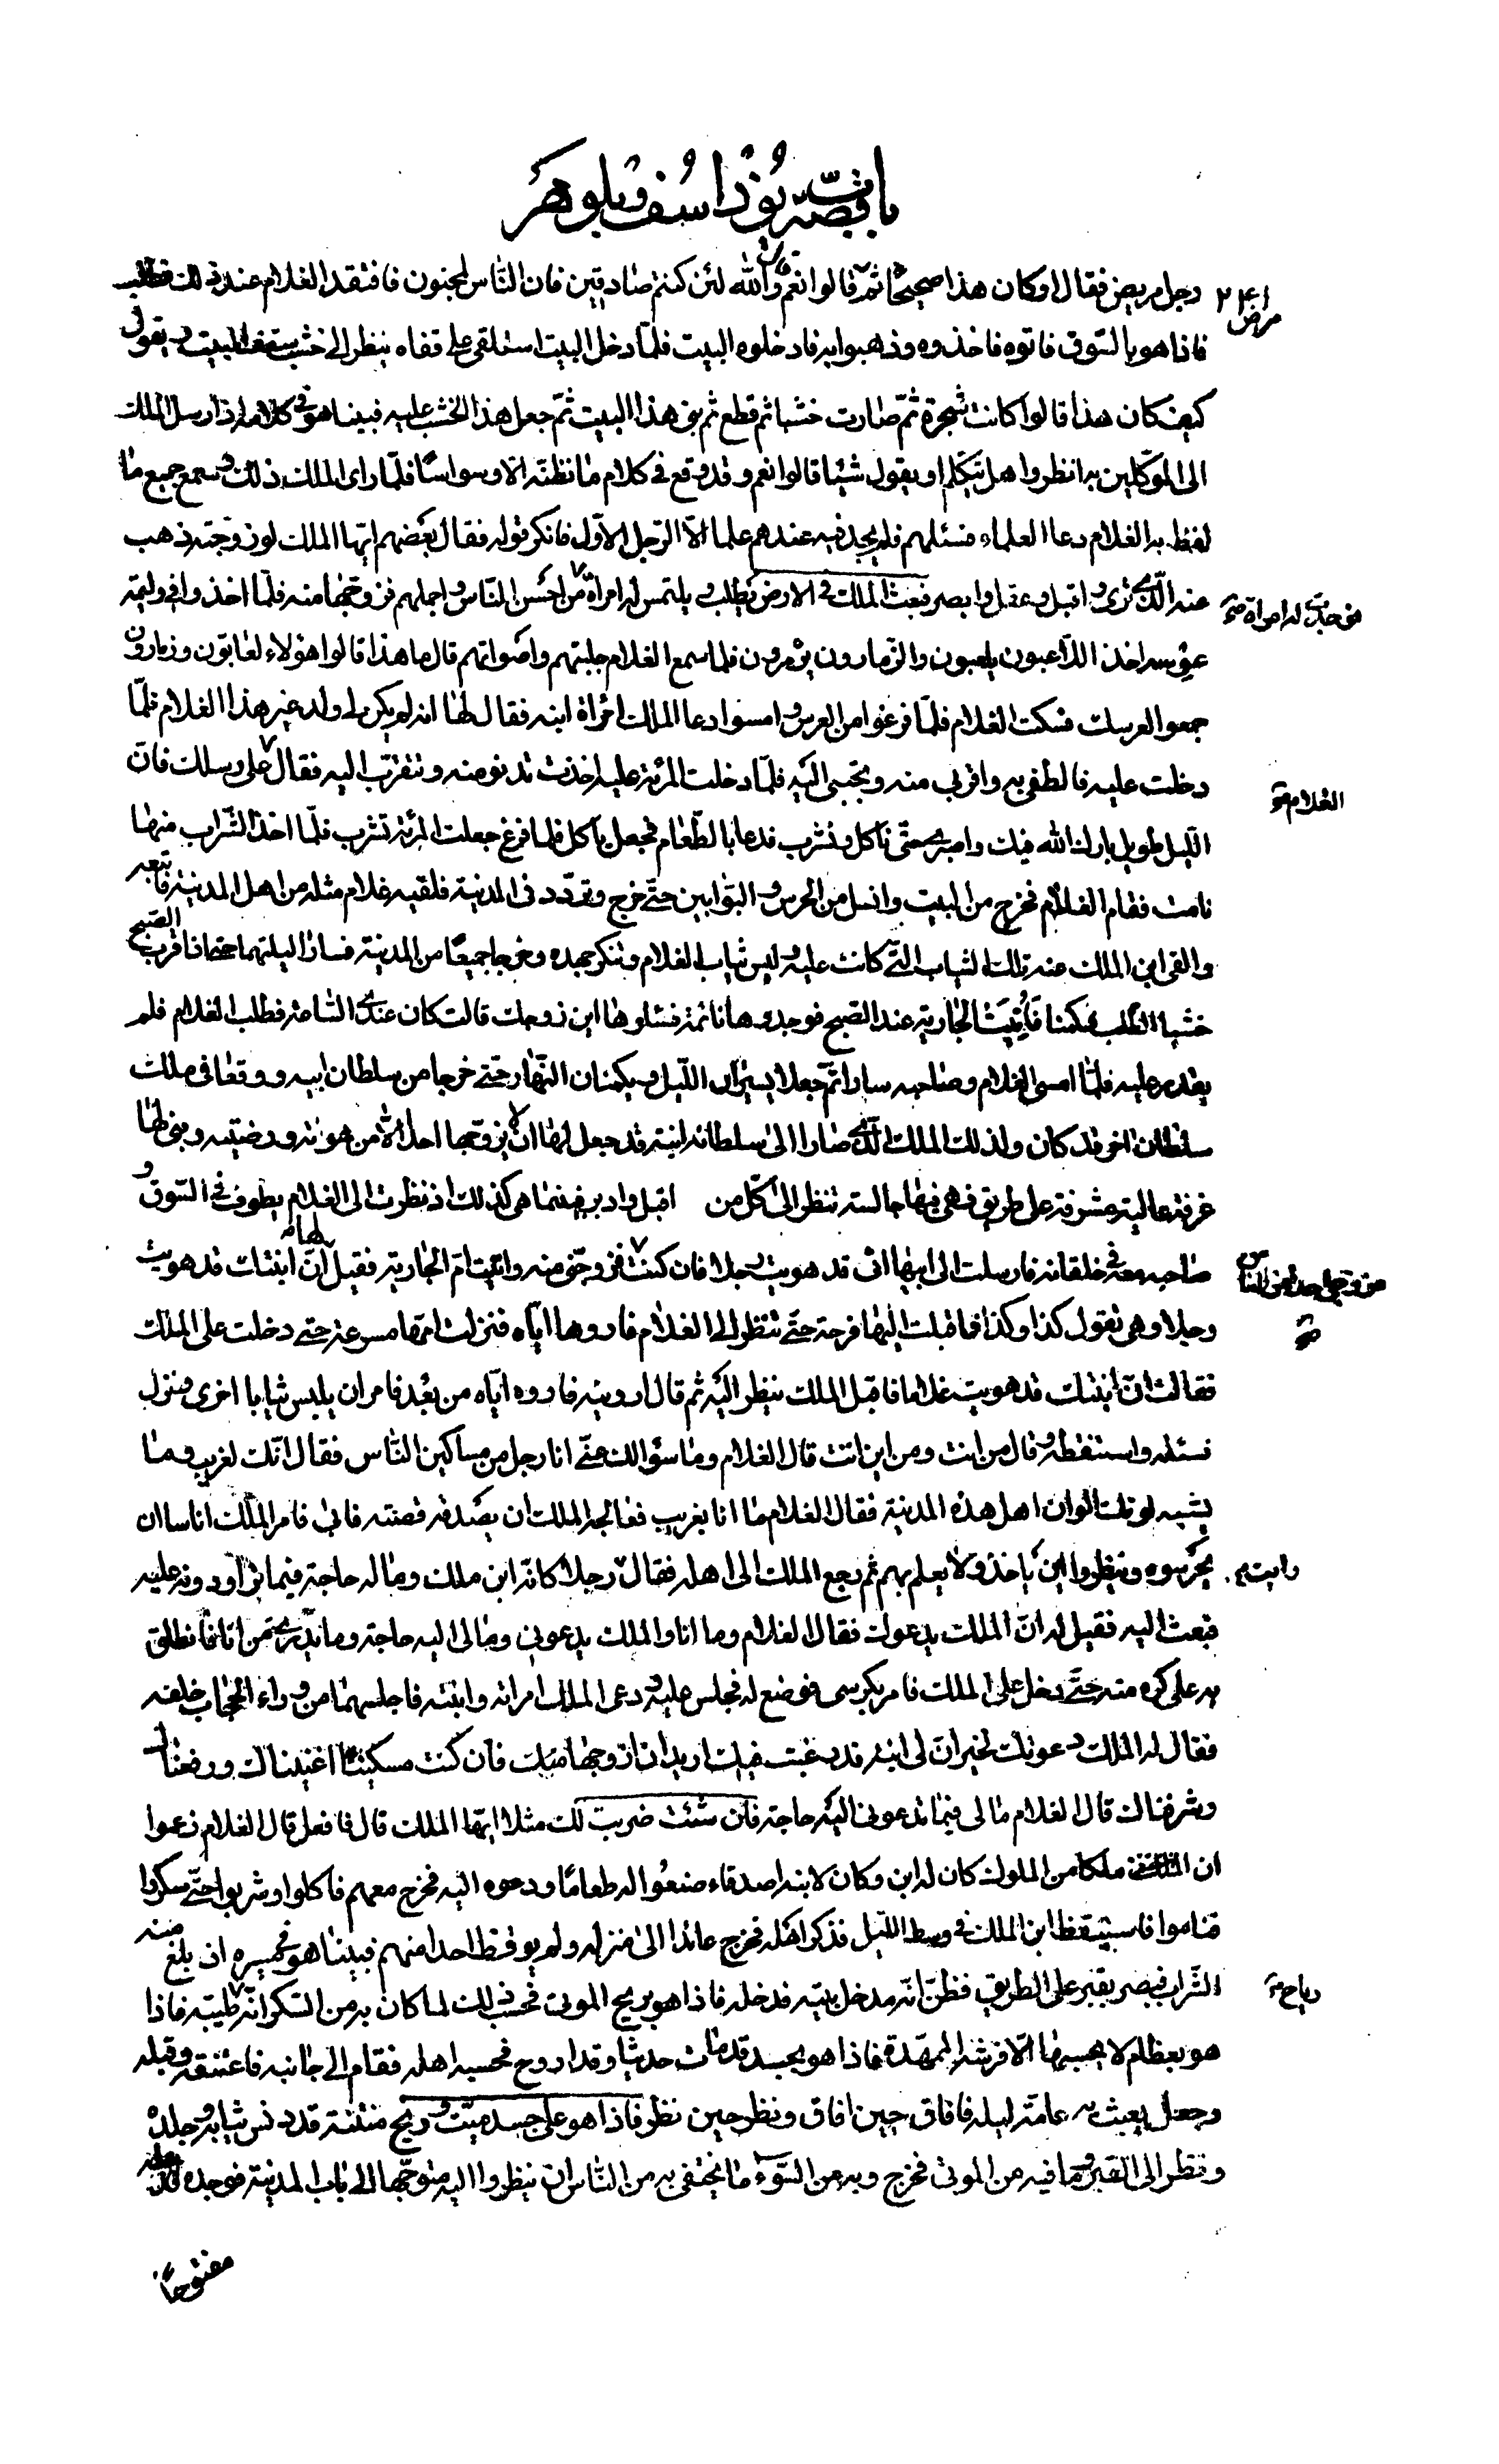 باقصّة يُوذاسُف وبلوهر
رجل مريض فقال اوكان هذا صحيحًا ثمّ مرض قالوا نعم قال والله لئن كنتم صادقين فان النّاس لمجنون فافتقد الغلام عند ذلك فطلب
۲۴۱
فاذا هو بالسّوق فاتوه فاخذوه وذهبوا به فادخلوه البيت فلمّا دخل البيت استلقى على قفاه ينظر الى خشب سقف البيت ويقول
كيف كان هذا قالوا كانت شجرة ثمّ صارت خشبا ثم قطع ثم بنى هذا البيت ثمّ جعل هذا الخشب عليه فبينا هو فى كلامه اذ ارسل الملك
الى الموكّلين به انظروا هل يتكلم او يقول شيئا قالوا نعم وقد وقع فى كلام ما نظنّه الا وسواسًا فلمّا راى الملك ذلك وسمع جميع ما
لفظ به الغلام دعا العلماء فسئلهم فلم يجد فيه عندهم علما الّا الرّجل الاوّل فانكر قوله فقال بعضهم ايّها الملك لو زوّجته ذهب
عنه الّذى ترى واقبل وعقل وابصر فبعث الملك فى الارض يطلب ويلتمس له امراة من احسن النّاس واجملهم فزوّجها منه فلمّا اخذوا فى وليمة
فوجدت له امراة
عرسه اخذ اللّاعبون يلعبون والزمارون يزمرون فلما سمع الغلام جلبتهم واصواتهم قال ما هذا قالوا هؤلاء لعّابون وزمارون
جمعوا لعرسك فسكت الغلام فلمّا فرغوا من العرس وامسوا دعا الملك امراة ابنه فقال لها انه لم يكن لى ولد غير هذا الغلام فلمّا
دخلت عليه فالطفى به واقربى منه وتحببى اليه فلمّا دخلت المرئة عليه اخذت تدنو منه وتتقرّب اليه فقال على رسلك فانّ
الغلام
اللّيل طويل بارك الله فيك واصبرى حتّى ناكل ونشرب فدعا بالطّعام فجعل ياكل فلما فرغ جعلت المرئة تشرب فلمّا اخذ الشّراب منها
نامت فقام الغلام فخرج من البيت وانسل من الحرس والبوّابين حتّى خرج وتردّد فى المدينة فلقيه غلام مثله من اهل المدينة فاتبعه
والقى ابن الملك عنه تلك الثياب الّتى كانت عليه ولبس ثياب الغلام وتنكر جهده وخرجا جميعًا من المدينة فسارا ليلتهما حتى اذا قرب الصّبح
خشيا الطّلب فكمنا فأُتيت الجارية عند الصّبح فوجدوها نائمة فسئلوها اين زوجك قالت كان عندى السّاعة فطلب الغلام فلم
يقدر عليه فلمّا امسى الغلام وصاحبه سارا ثمّ جعلا يسيران اللّيل ويكمنان النّهار حتّى خرجا من سلطان ابيه ووقعا فى ملك
سلطان اخر وقد كان لذلك الملك الّذى صارا الى سلطانه ابنة قد جعل لها ان لا يزوّجها احدا الّا من هوته ورضيته وبنى لها
غرفة عالية مشرفة على طريق فهى فيها جالسة تنظر الى كلّ من اقبل وادبر فبينما هى كذلك اذ نظرت الى الغلام يطوف فى السّوق و
صاحبه معه فى خلقانه فارسلت الى ابيها انى قد هويت رجلا فان كنت فزوّجنى منه واتيت امّ الجارية فقيل لها انّ ابنتك قد هويت
مزوجى احدا من النّاس
رجلا وهى تقول كذا وكذا فاقبلت اليها فرحة حتّى تنظر الى الغلام فاروها ايّاه فنزلت امّها مسرعة حتى دخلت على الملك
فقالت انّ ابنتك قد هويت غلاما فاقبل الملك ينظر اليه ثم قال ارونيه فاروه ايّاه من بعد فامر ان يلبس ثيابا اخرى ونزل
فسئله واستنطقه وقال من انت ومن اين انت قال الغلام وما سؤالك عنّى انا رجل من مساكين النّاس فقال انّك لغريب وما
يشبه لونك الوان اهل هذه المدينة فقال الغلام ما انا بغريب فعالجه الملك ان يصدقه قصته فابى فامر الملك اناسا ان
يحرسوه وينظروا اين ياخذ ولا يعلم بهم ثم رجع الملك الى اهله فقال رجلا كانّه ابن ملك وما له حاجة فيما تراودونه عليه
رايت
فبعث اليه فقيل له انّ الملك يدعوك فقال الغلام وما انا والملك يدعونى وما لى اليه حاجة وما يدرى من انا فانطلق
به على كره منه حتّى دخل على الملك فامر بكرسى فوضع له فجلس عليه ودعى الملك امراته وابنته فاجلسهما من وراء الحجاب خلفه
فقال له الملك دعوتك لخير ان لى ابنة قد رغبت فيك اريد ان ازوجها منك فان كنت مسكينًا اغنيناك ورفعناك
وشرفناك قال الغلام ما لى فيما تدعونى اليه حاجة فان شئت ضربت لك مثلا ايّها الملك قال فافعل قال الغلام زعموا
ان ملكا من الملوك كان له ابن وكان لابنه اصدقاء صنعوا له طعامًا ودعوه اليه فخرج معهم فاكلوا وشربوا حتّى سكروا
فناموا فاستيقظ ابن الملك فى وسط اللّيل فذكر اهله فخرج عائدا الى منزله ولم يوقظ احدا منهم فبينا هو فى مسيره اذ بلغ منه
الشّراب فبصر بقبر على الطريق فظنّ انّه مدخل بيته فدخله فاذا هو بريح الموتى فحسب ذلك لما كان به من السّكر انّه طيبة فاذا
رياح
هو بعظام لا يحسبها الّا فرشه الممهّدة فاذا هو بجسد قد مات حديثا وقد اروح فحسبه اهله فقام الى جانبه فاعتنقه وقبله
وجعل يعبث به عامّة ليله فافاق حين افاق ونظر حين نظر فاذا هو على جسد ميّت وريح منتنة قد دنس ثيابه وجلده
ونظر الى القبر وما فيه من الموتى فخرج وبه من السّوء ما يختفى به من النّاس ان ينظروا اليه متوجّها الى باب المدينة فوجده
مفتوحًا